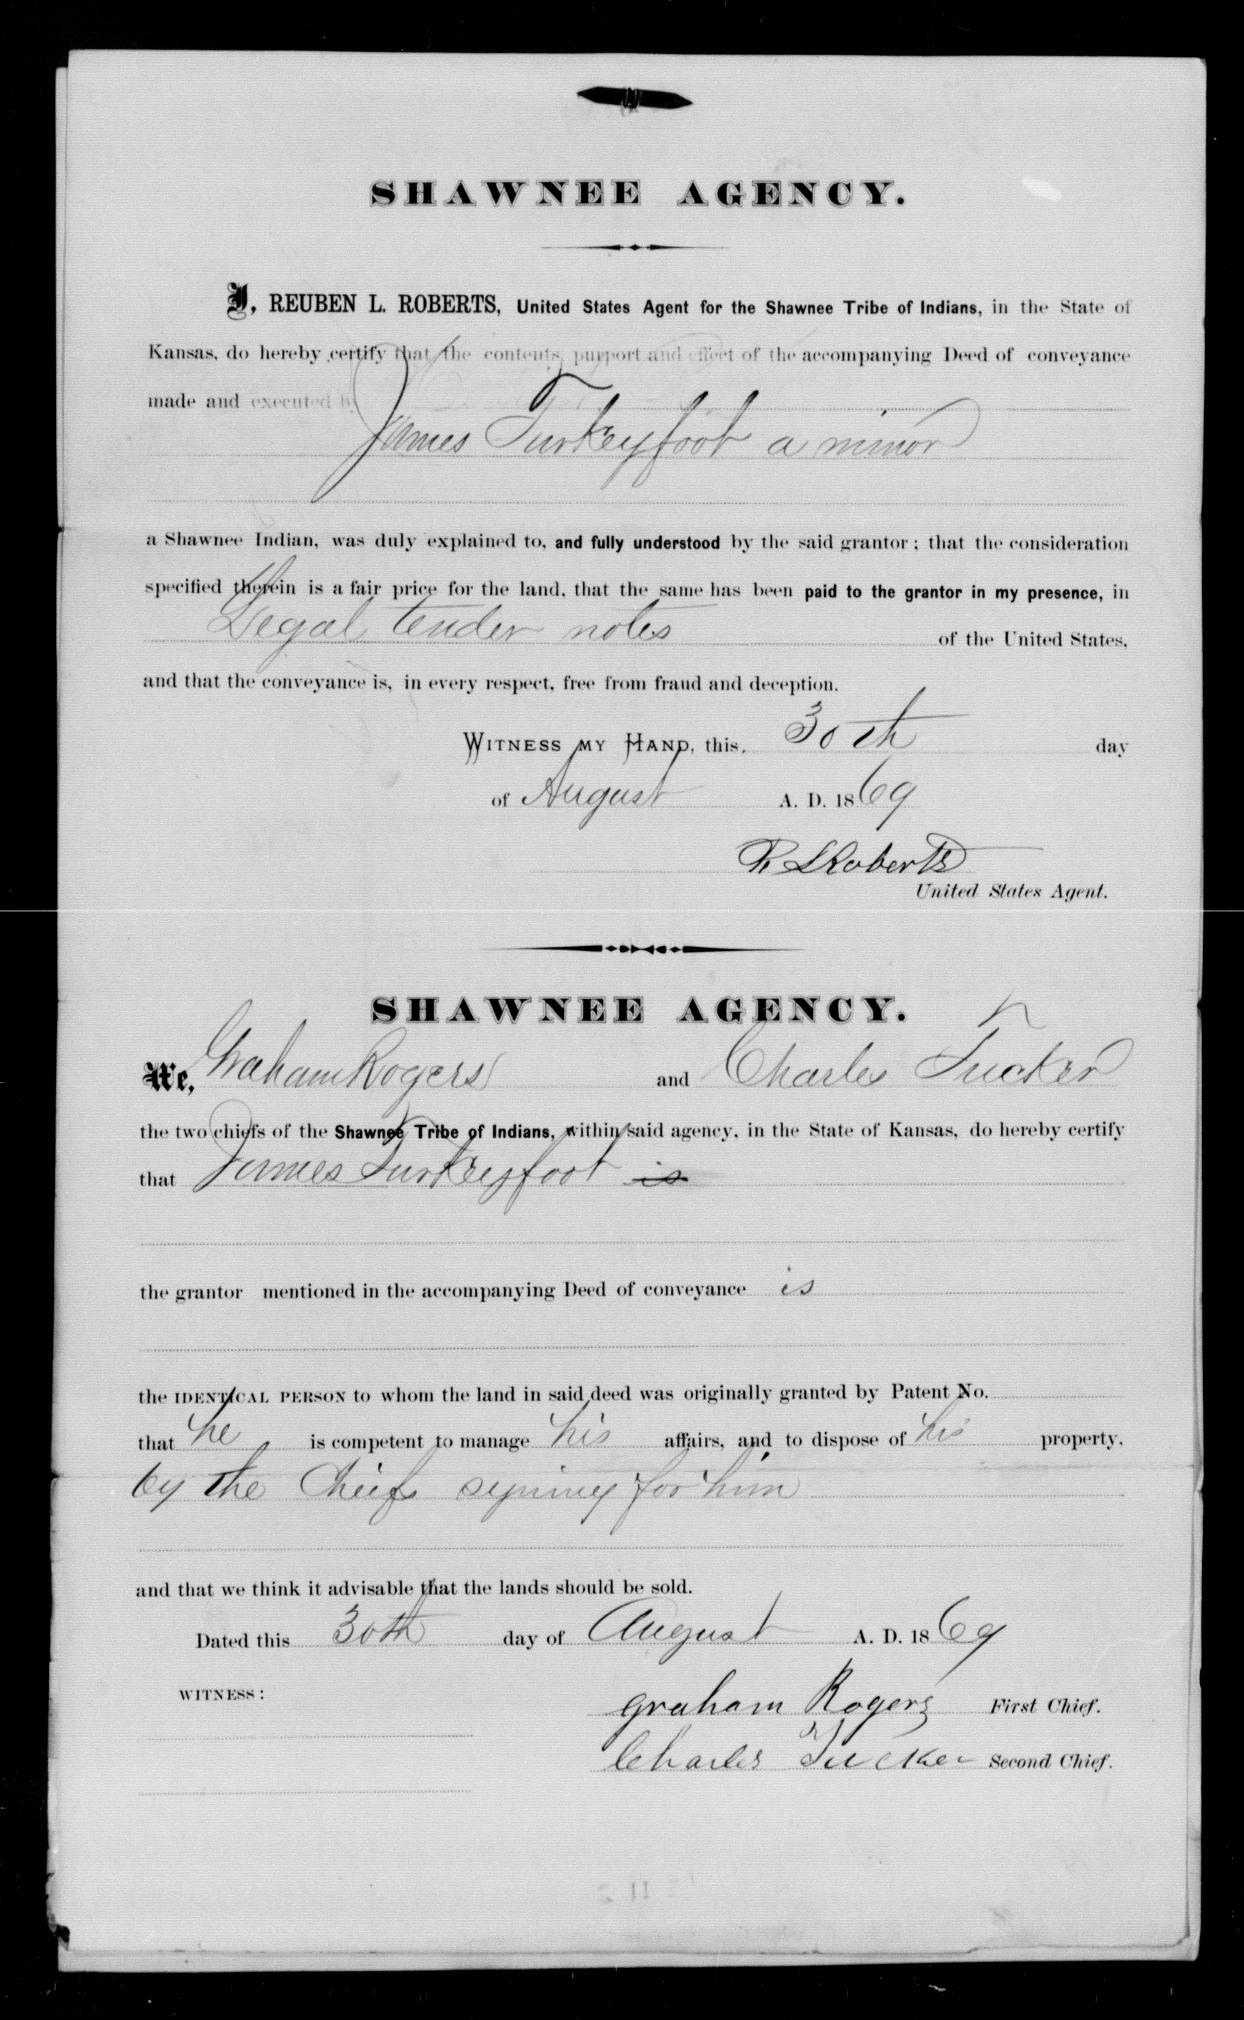 SHAWNEE AGENCY.
I, REUBEN L. ROBERTS, United States Agent for the Shawnee Tribe of Indians, in the State of
Kansas, do hereby certify that the contents, purport and effect of the accompanying Deed of conveyance
made and executed by
James Turkeyfoot a minor
a Shawnee Indian, was duly explained to, and fully understood by the said grantor; that the consideration
specified therein is a fair price for the land, that the same has been paid to the grantor in my presence, in
Legal tender notes of the United States,
and that the conveyance is, in every respect, free from fraud and deception.
WITNESS MY HAND, this, 30th day
of August A. D. 1869
R. L Roberts
United States Agent.
SHAWNEE AGENCY.
We, Graham Rogers and Charles Tucker
the two chiefs of the Shawnee Tribe of Indians, within said agency, in the State of Kansas, do hereby certify
that James Turkeyfoot is
the grantor mentioned in the accompanying Deed of conveyance is
the IDENTICAL PERSON to whom the land in said deed was originally granted by Patent No.
that he is competent to manage his affairs, and to dispose of his property,
by the Chiefs signing for him
and that we think it advisable that the lands should be sold.
Dated this 30th day of August A. D. 1869
WITNESS:
Graham Rogers First Chief.
Charles Tucker Second Chief.